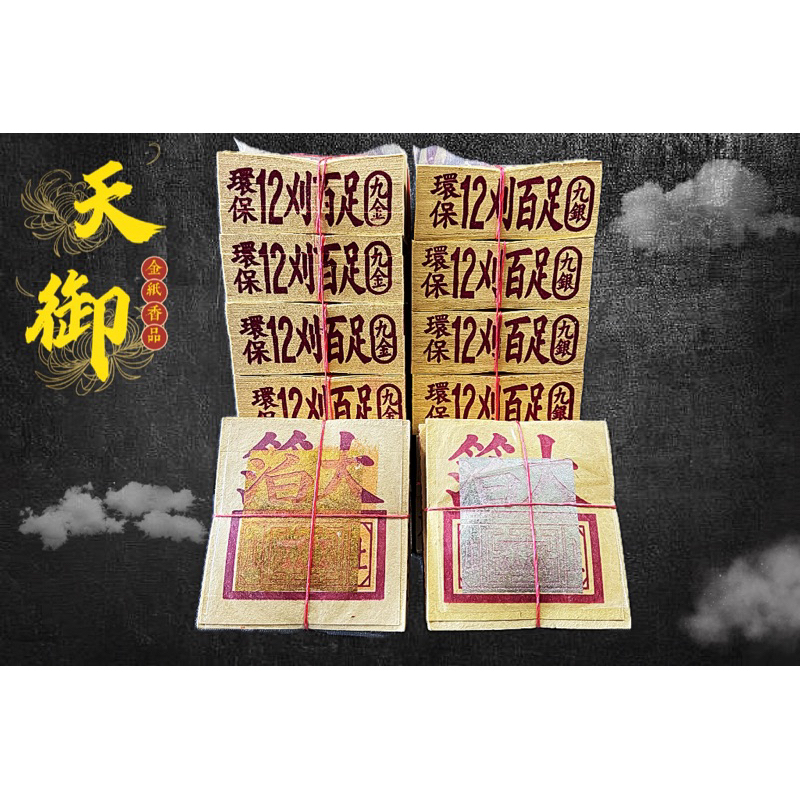 天御
金紙香品
環保12刈百足九金
環保12刈百足九金
環保12刈百足九金
環保12刈百足九金
環保12刈百足九銀
環保12刈百足九銀
環保12刈百足九銀
環保12刈百足九銀
大箔
大箔